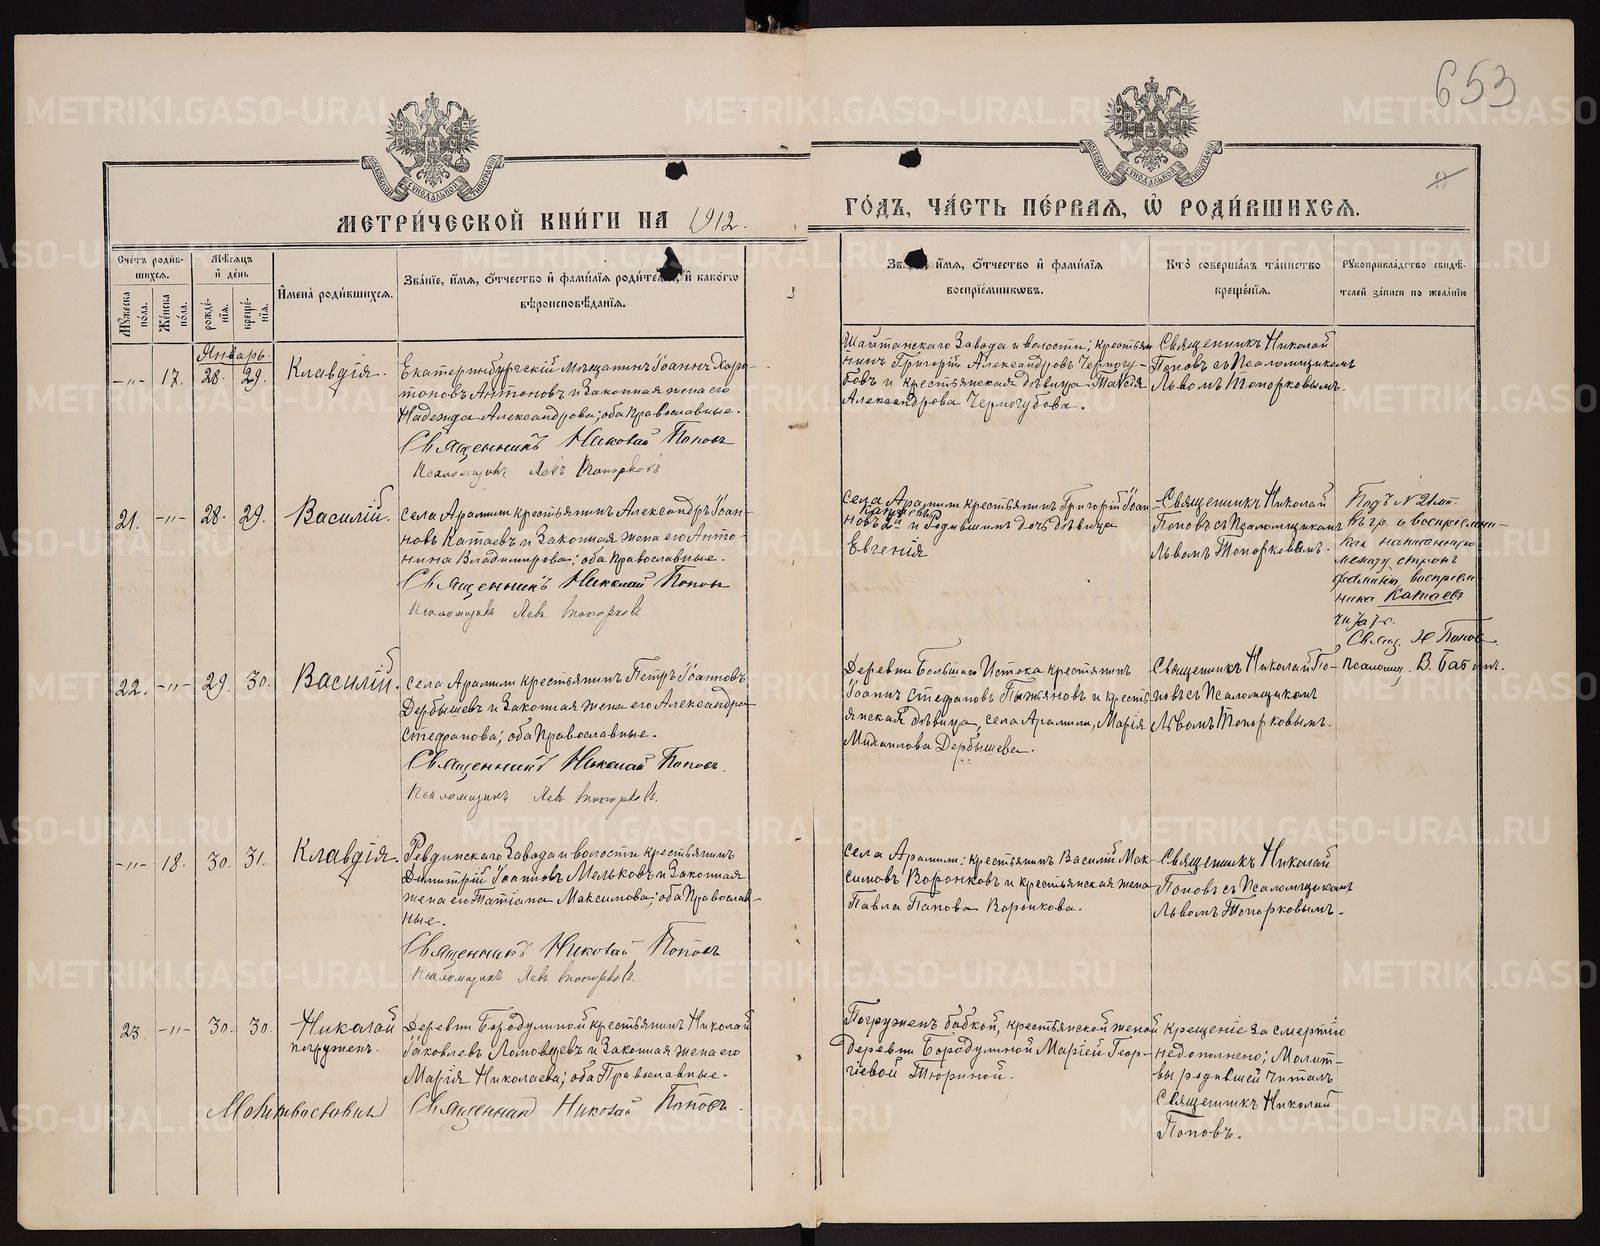 653
МЕТРИ́ЧЕСКОЙ КНИ́ГИ НА 1912.
ГО́ДЪ, ЧА́СТЬ ПЕ́РВАЯ, Ѡ РОДИ́ВШИХСЯ.
Сче́тъ роди́в-
шихся.
Мꙋ́жеска по́ла.
Же́нска по́ла.
Мѣ́сяцъ
и҆ де́нь
рожде́-
нїя.
креще́-
нїя.
И҆мена̀ роди́вшихся.
Зва́нїе, и҆́мя, ѻ҆́тчество и҆ фами́лїя роди́телей, и҆ како́гѡ
вѣроисповѣ́данїя.
и҆́мя, ѻ҆́тчество и҆ фами́лїя
воспрїе́мникѡвъ.
Кто̀ соверша́лъ та́инство
креще́нїя.
Рꙋкоприкла́дство свидѣ́-
телей за́писи по жела́нїю
Январь.
-„- 17. 28. 29. Клавдія.
Екатеринбургскій мѣщанинъ Іоаннъ Хари-
тоновъ Антоновъ и законная жена его
Надежда Александрова; оба Православные.
Священникъ Николай Поповъ
Псаломщикъ Левъ Топорковъ
Шайтанскаго Завода и волости; крестьян-
нинъ Григорій Александровъ Черногу-
бовъ и крестьянская дѣвица Таисія
Александрова Черногубова.
Священникъ Николай
Поповъ съ Псаломщикомъ
Львомъ Топорковымъ.
21. -„- 28. 29. Василій.
села Арамили крестьянинъ Александръ Іоан-
новъ Катаевъ и законная жена его Анто-
нина Владимирова; оба Православные.
Священникъ Николай Поповъ
Псаломщикъ Левъ Топорковъ
Села Арамили крестьянинъ Григорій Іоан
Катаевъ
новъ 2й и родившимъ дочь дѣвица
Евгенія
Священникъ Николай
Поповъ съ Псаломщикомъ
Львомъ Топорковымъ.
Подъ N 21мъ
въ гр. о воспріемни-
кахъ написанную
между строкъ
фамилію, воспріем-
ника Катаевъ
читать.
Свящ. Н Поповъ
Псаломщ. В. Бабинъ.
22. -„- 29. 30. Василій.
села Арамили крестьянинъ Петръ Іоанновъ
Дербышевъ и законная жена его Александра
Стефанова; оба Православные.
Священникъ Николай Поповъ.
Псаломщикъ Левъ Топорковъ.
Деревни Большаго Истока крестьянинъ
Іоаннъ Стефановъ Пьянковъ и крестья-
янская дѣвица, села Арамили, Марія
Михаилова Дербышева.
Священникъ Николай По-
повъ съ Псаломщикомъ
Львомъ Топорковымъ.
-„- 18. 30. 31. Клавдія.
Ревдинскаго Завода и волости крестьянинъ
Димитрій Іоанновъ Мельковъ и законная
жена его Татіана Максимова; оба Православ-
ные.
Священникъ Николай Поповъ
Псаломщикъ Левъ Топорковъ.
села Арамили: крестьянинъ Василій Мак-
симовъ Воронковъ и крестьянская жена
Павла Панова Воронкова.
Священникъ Николай
Поповъ съ Псаломщикомъ
Львомъ Топорковымъ.
23. -„- 30. 30. Николай
погруженъ.
Деревни Бородулиной крестьянинъ Николай
Іаковлевъ Ломовцевъ и законная жена его
Марія Николаева; оба Православные.
Молитвословилъ Священникъ Николай Поповъ.
Погруженъ бабкой, крестьянской женой
Деревни Бородулиной Маріей Геор-
гіевой Тюриной.
Крещеніе за смертію
недополнено; Молит-
вы родившей читалъ
Священникъ Николай
Поповъ.
METRIKI.GASO-URAL.RU